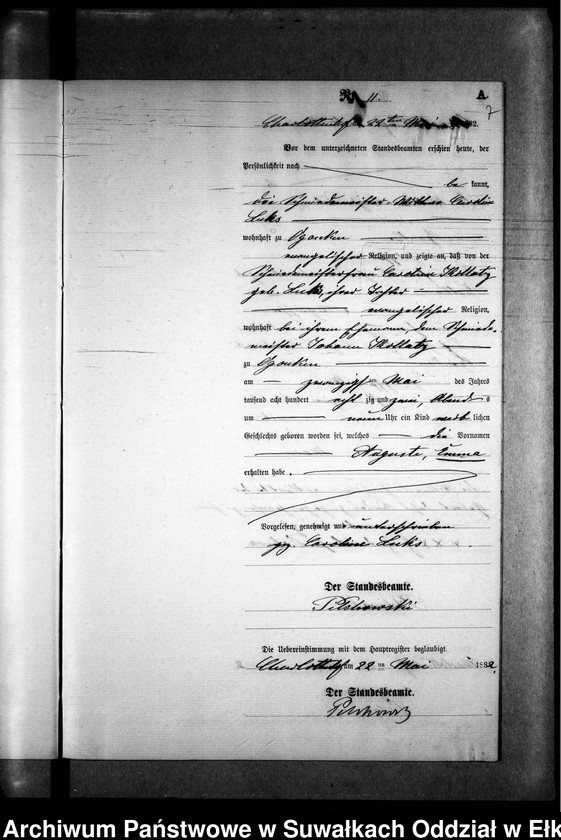 Nr. 11.
A.
7
am 22ten Mai 1882.
Vor dem unterzeichneten Standesbeamten erschien heute, der
Persönlichkeit nach
be kannt,
die Schmiedemeister Wittwe Caroline
Luks
wohnhaft zu
evangelischer Religion, und zeigte an, daß von der
Schmiedemeisterfrau Caroline Kollatz
geb. Luks, ihrer Tochter
evangelischer Religion,
wohnhaft bei ihrem Ehemann, dem Schmiede-
meister Johann Kollatz
zu
am zwanzigsten Mai des Jahres
tausend acht hundert acht zig und zwei, Abends
um neun Uhr ein Kind weib lichen
Geschlechts geboren worden sei, welches die Vornamen
Auguste, Emma
erhalten habe.
Vorgelesen, genehmigt und unterschrieben
gez. Caroline Luks.
Der Standesbeamte.
Die Uebereinstimmung mit dem Hauptregister beglaubigt
am 22 ten Mai 1882.
Der Standesbeamte.
Archiwum Państwowe w Suwałkach Oddział w Ełk